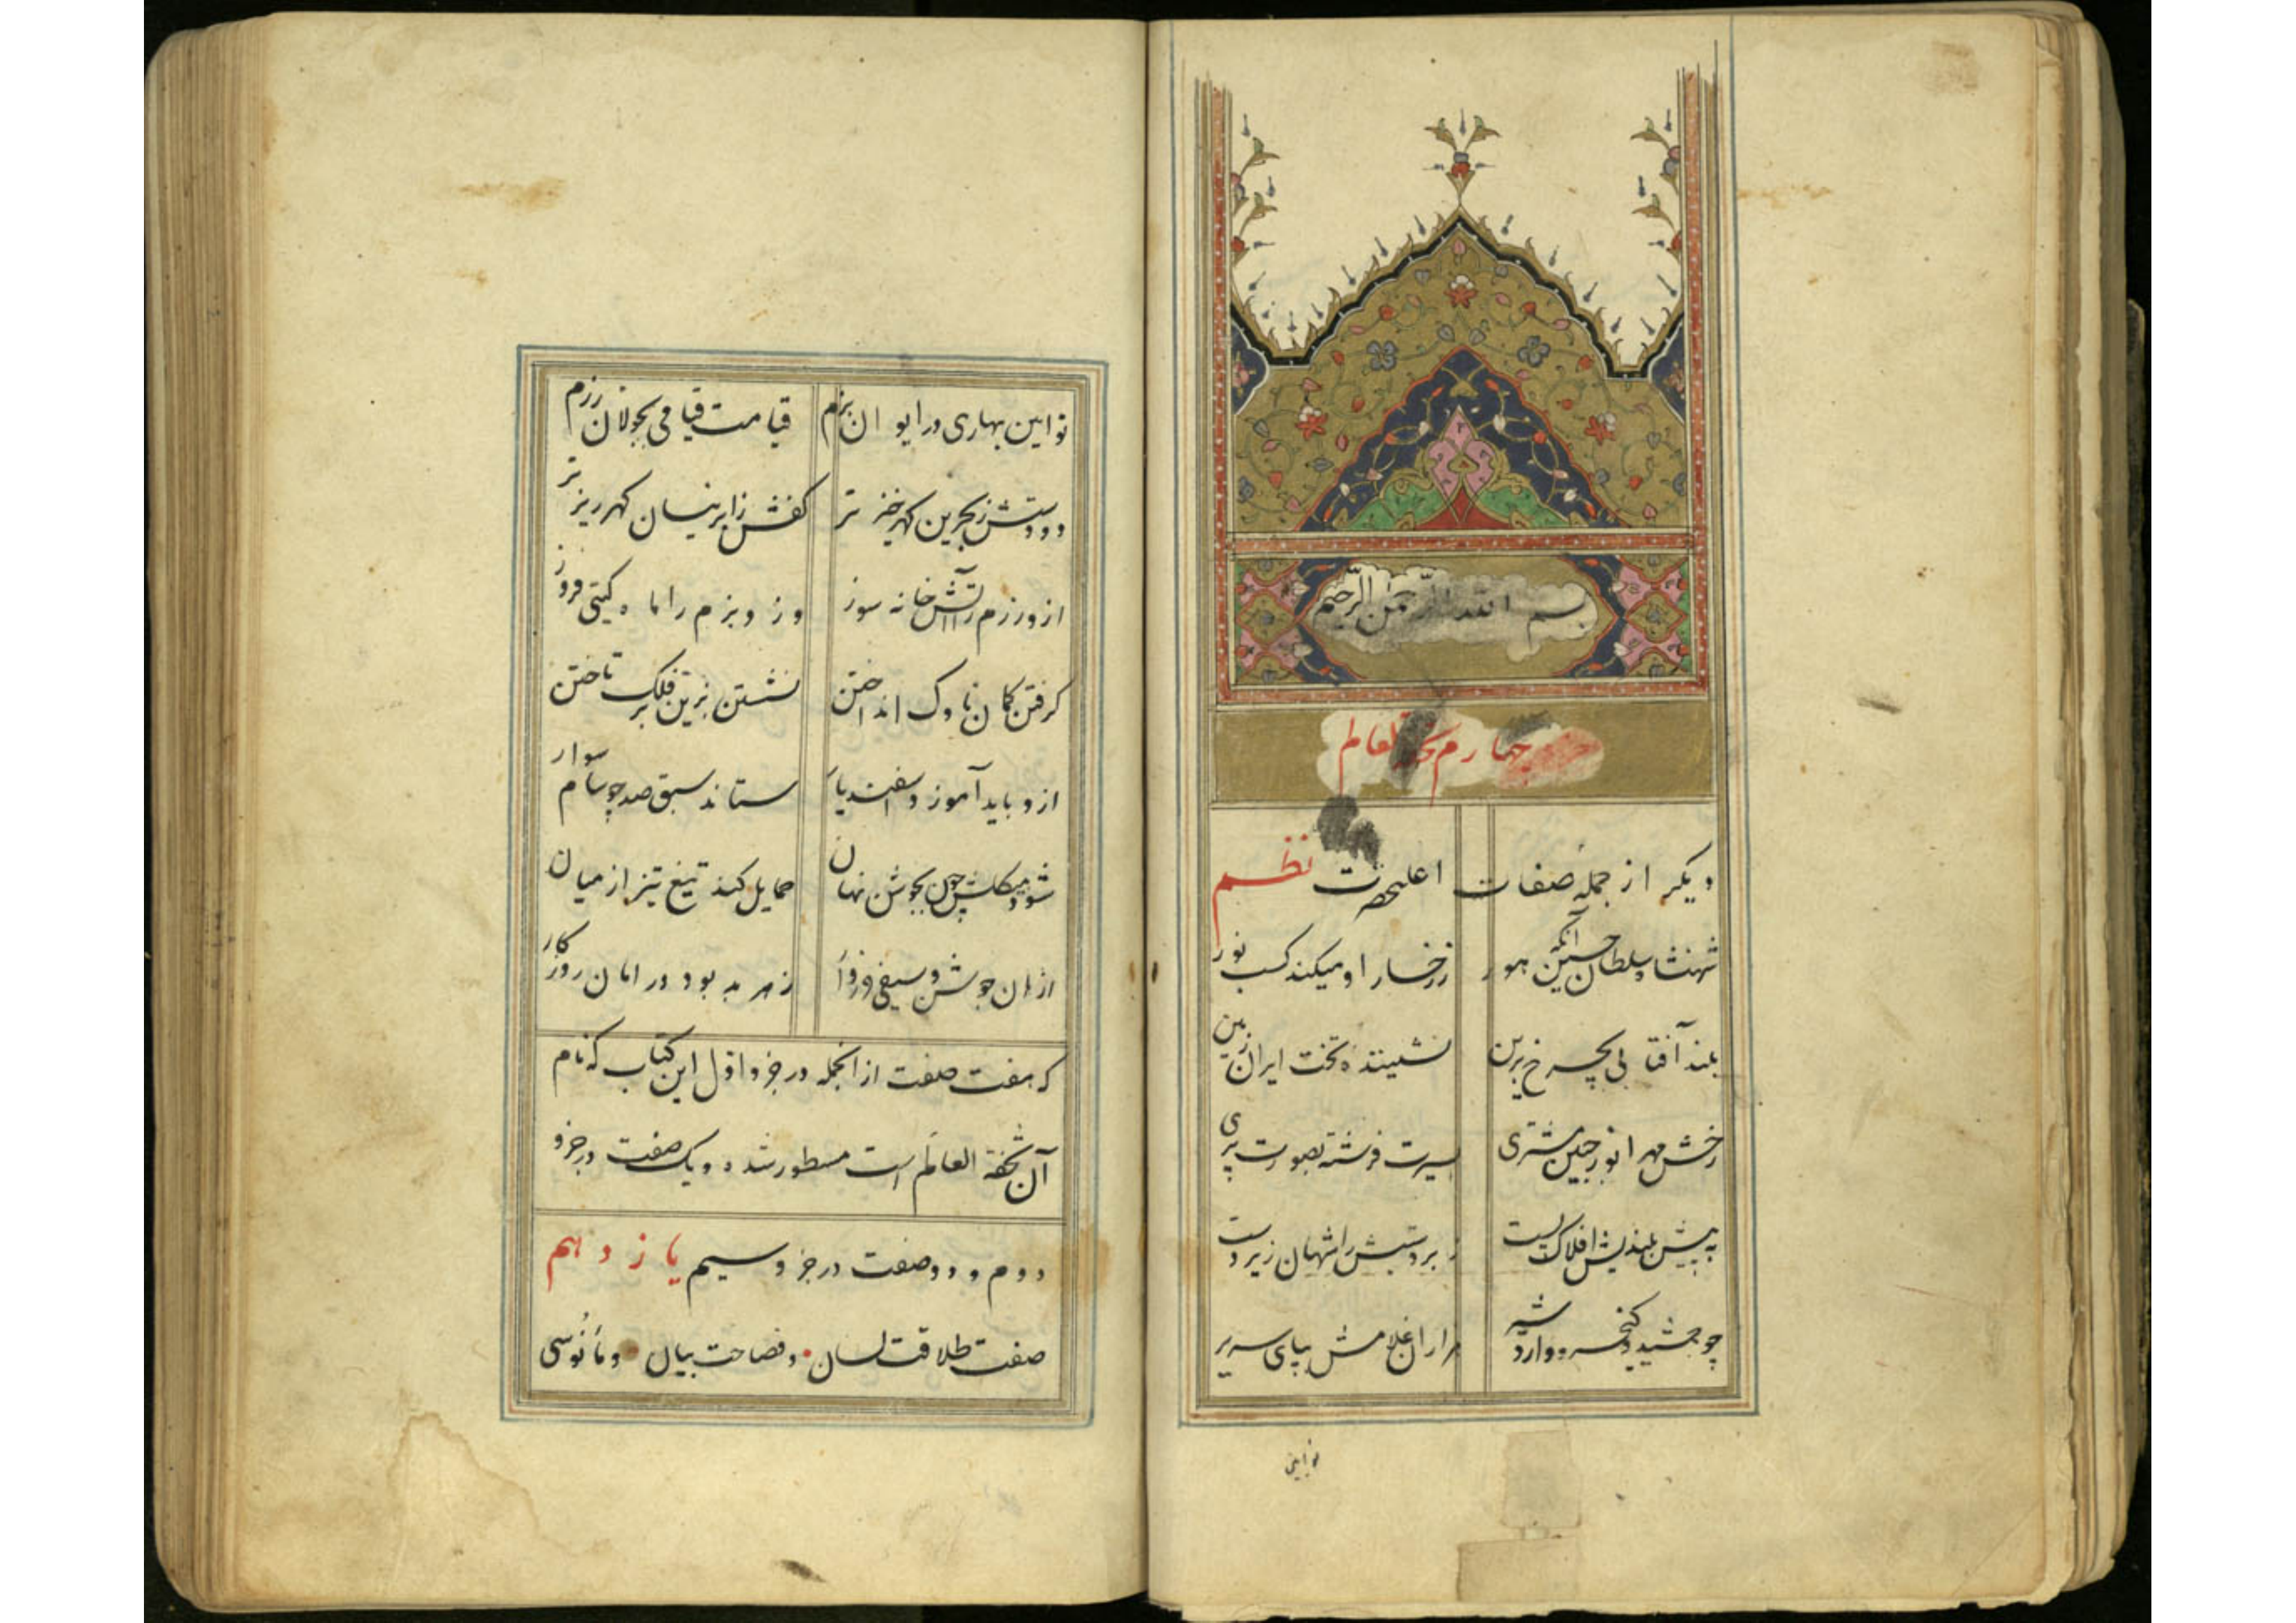 بسم الله الرحمن الرحیم
چهارم تحفة العالم
دیگر از جمله صفات اعلیحضرت نظم
شهنشاه سلطان حسین آنکه هور ز رخسار او میکند کسب نور
بلند آفتابی بچرخ برین نشیننده تخت ایران زمین
رخش مهر انور جبین مشتری بسیرت فرشته بصورت پری
به پیش بلندیش افلاک پست زبردستیش را شهان زیردست
چو جمشید و کیخسرو و اردشیر هزاران غلامش بپای سریر
نوایین
نوایین بهاری در ایوان بزم قیامت قیامی بجولان رزم
دو دستش ز بحرین گهرخیزتر کفش ز ابر نیسان گهرریزتر
ازو رزم را آتش خانه سوز وزو بزم را ماه گیتی فروز
گرفتن کمان ناوک انداختن نشستن بزین بر فلک تاختن
ازو باید آموزد اسفندیار ستاند سبق صد چو سام سوار
شود پیکرش چون بجوشن نهان حمایل کند تیغ تیز از میان
ازان جوشن و سیفی فرو از هر بد بود در امان روزگار
که هفت صفت از انجمله در جزو اول این کتاب که نام
آن تحفة العالم است مسطور شده و یک صفت در جزو
دوم و دو صفت در جزو سیم یازدهم
صفت طلاقت لسان و فصاحت بیان و مأنوسی